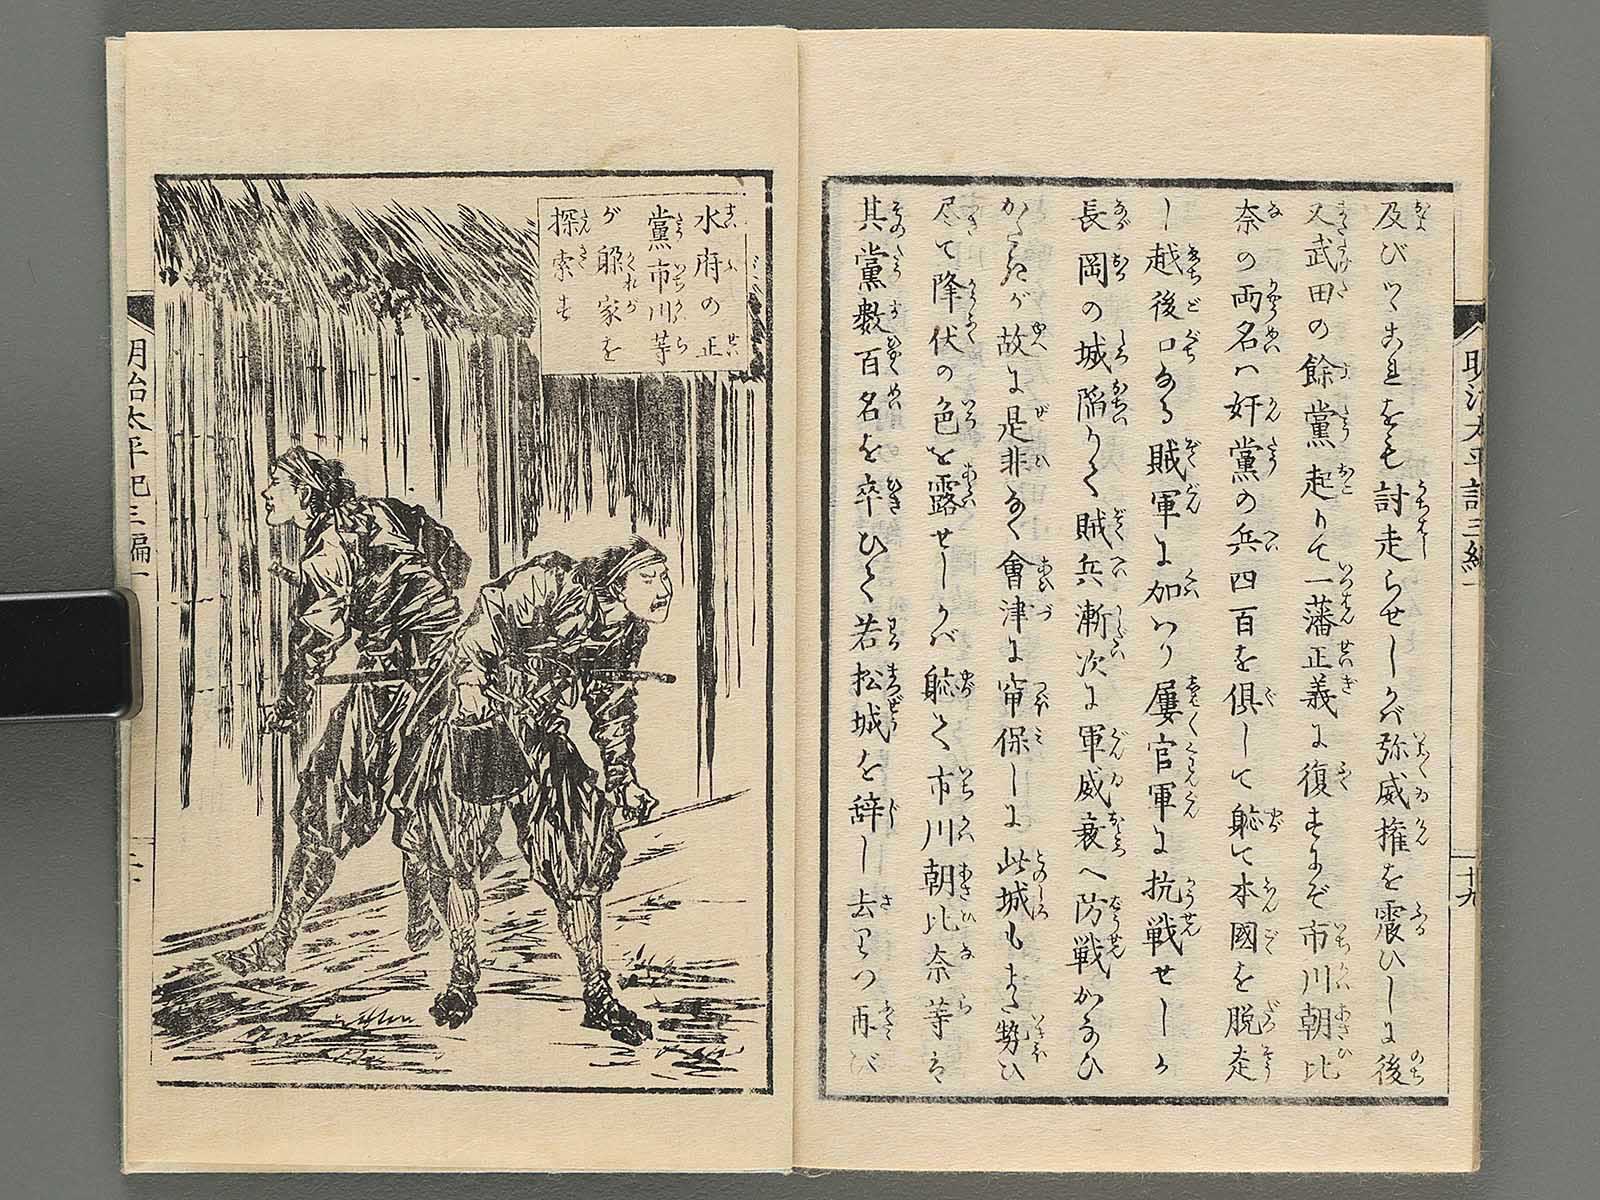 明治太平記三編一
十九
及びツヽあまをも討走らせしかバ弥威権を震ひしに後
又武田の餘黨起りて一藩正義に復すにぞ市川朝比
奈の両名ハ奸黨の兵四百を倶して脱て本國を脱走
し越後口なる賊軍に加ハり屢官軍に抗戦せしか
長岡の城陥りて賊兵漸次に軍威衰へ防戦かなひ
がたきが故に是非なく會津に窜保しに此城もまた勢ひ
尽て降伏の色を露せしかバ躰て市川朝比奈等ハ
其黨数百名を卒ひて若松城を辞し去りつ再び
水府の正
黨市川等
が躱家を
探索す
明治太平記三編一